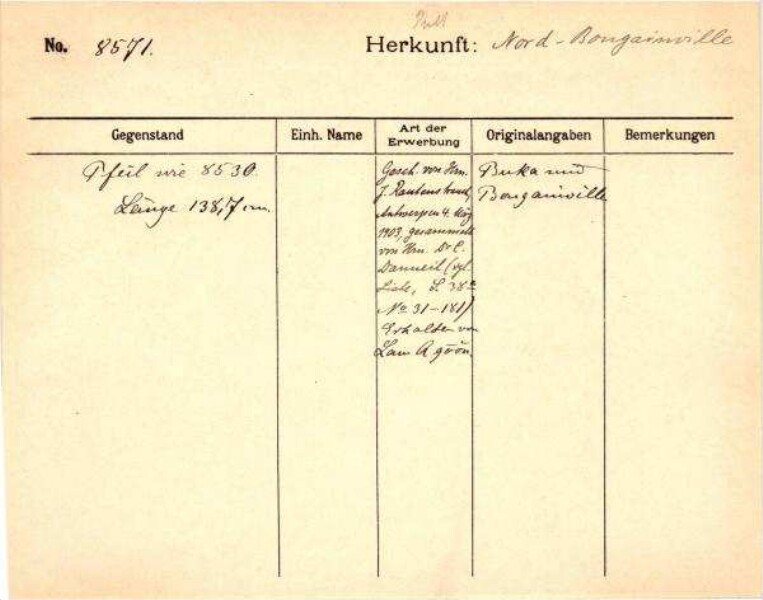 No. 8571. Herkunft: Nord-Bougainville
Gegenstand
Einh. Name
Art der
Erwerbung
Originalangaben
Bemerkungen
Pfeil wie 8530.
Länge 138,7 cm.
Gesch. von Hrn.
J. Rautenstrauch,
Antwerpen 4. März
1903, gesammelt
von Hrn. Dr C.
Danneil (vgl.
Liste, S. 38a
No 31-181)
Erhalten von
Lam A gvön.
Buka und
Bougainville